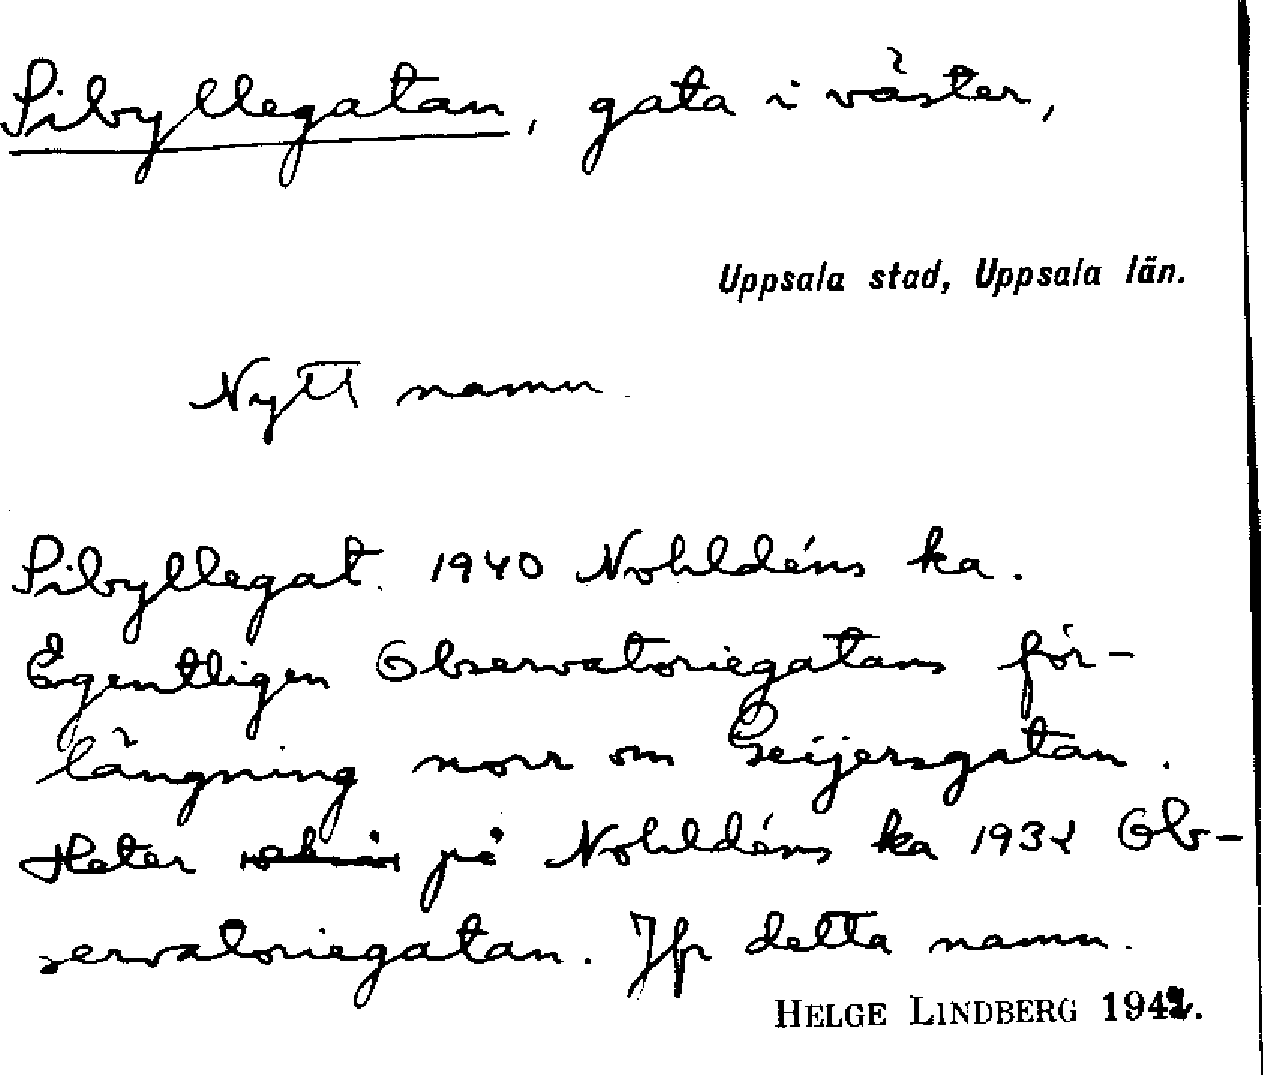 Sibyllegatan, gata i väster,
Uppsala stad, Uppsala län.
Nytt namn.
Sibyllegat. 1940 Nohldéns ka.
Egentligen Observatoriegatans för-
längning norr om Geijersgatan.
Heter på Nohldéns ka 1932 Ob-
servatoriegatan. Jfr detta namn.
HELGE LINDBERG 1942.